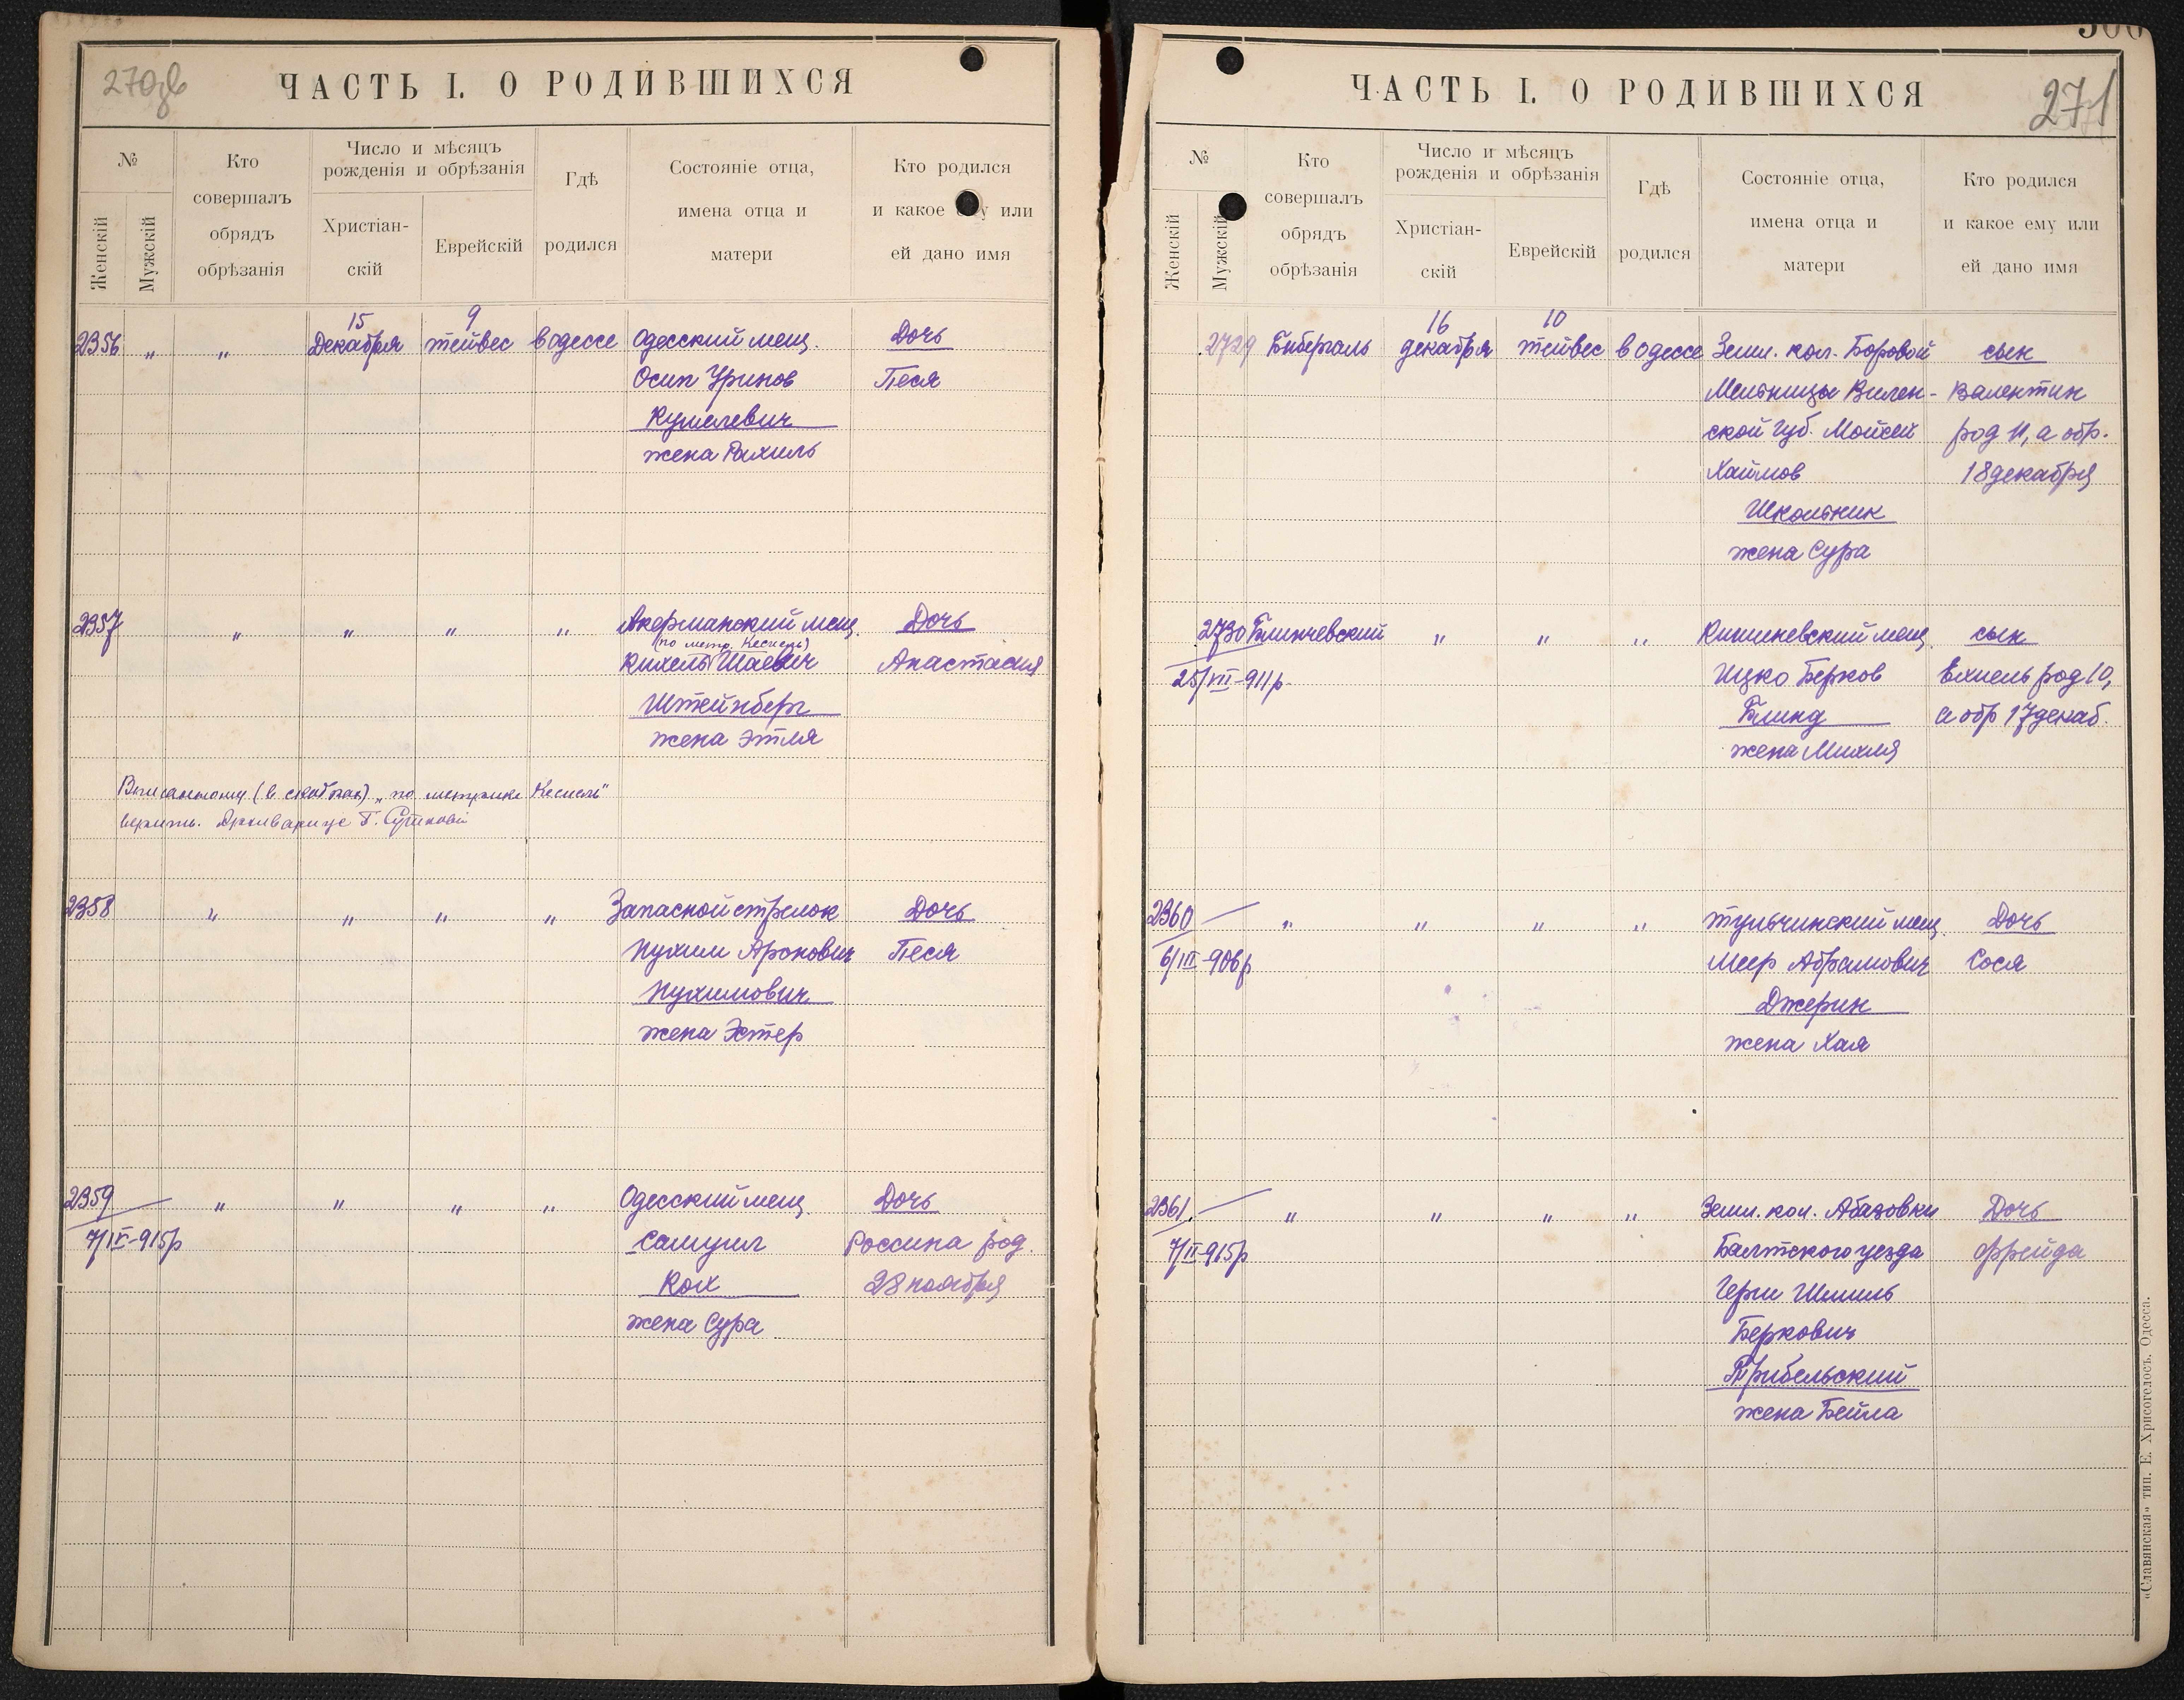 270об
ЧАСТЬ I. О РОДИВШИХСЯ
№
Женскій
Мужскій
Кто
совершалъ
обрядъ
обрѣзанія
Число и мѣсяцъ
рожденія и обрѣзанія
Христіан-
скій
Еврейскій
Гдѣ
родился
Состояніе отца,
имена отца и
матери
Кто родился
и какое ему или
ей дано имя
15 9
2356 „ „ Декабря тейвес в одессе Одесский мещ. Дочь
Осип Уринов Песя
Кушелевич
жена Рахиль
2357 „ „ „ „ Акерманский мещ. Дочь
(по метр. Кесиель)
Кихель Шаевич Анастасия
Штейнберг
жена Этля
Вписанному (в скобках) „по метрике Кесиель"
верить. Архивариус
2358 „ „ „ „ Запасной стрелок Дочь
Нухим Аронович Песя
Нухимович
жена Эстер
2359 „ „ „ „ Одесский мещ Дочь
7/IV-915р Самуил Россина род.
Кох 28 ноября
жена Сура
ЧАСТЬ I. О РОДИВШИХСЯ
271
№
Женскій
Мужскій
Кто
совершалъ
обрядъ
обрѣзанія
Число и мѣсяцъ
рожденія и обрѣзанія
Христіан-
скій
Еврейскій
Гдѣ
родился
Состояніе отца,
имена отца и
матери
Кто родился
и какое ему или
ей дано имя
16 10
2729 Бибергаль декабря тейвес в одессе Земл. кол. Боровой сын
Мельницы Вилен- Валентин
ской Губ. Мойсей род 11, а обр.
Хаимов 18 декабря
Школьник
жена Сура
2730 Блинчевский „ „ „ Кишиневский мещ. сын
25/VII-911р. Ицко Берков Ехиель род 10,
Блинд а обр 17 декаб.
жена Михля
2360 „ „ „ „ Тульчинский мещ. Дочь
6/III-906р Меер Абрамович Сося
Джерин
жена Хая
2361. „ „ „ „ Земл. кол. Абазовки Дочь
7/II-915р Балтского уезда Фрейда
Герш Шмиль
Беркович
Прибельский
жена Бейла
«Славянская» тип. Е. Хрисогелосъ. Одесса.